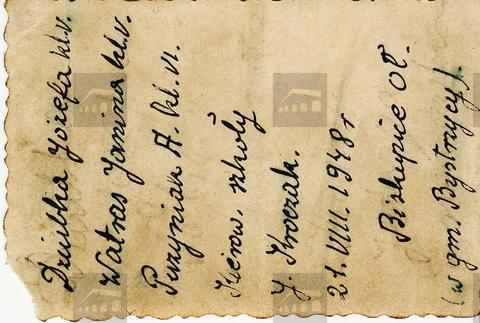 Dziubka Józefa kl. V.
Watras Janina kl. V.
Puzyniak A. kl. VI.
Kierow. szkoły
J. Kroczak.
21. VIII. 1948 r
Biskupice Oł.
(w gm. Bystrzycy).